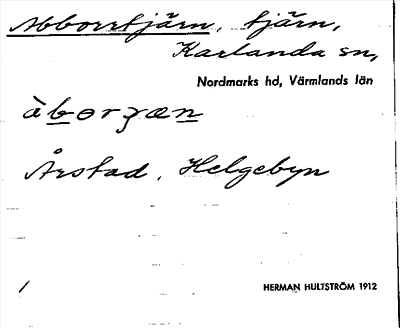 Abborrtjärn, tjärn,
Karlanda sn,
Nordmarks hd, Värmlands län
àborȝæn
Årstad, Helgebyn
/
HERMAN HULTSTRÖM 1912